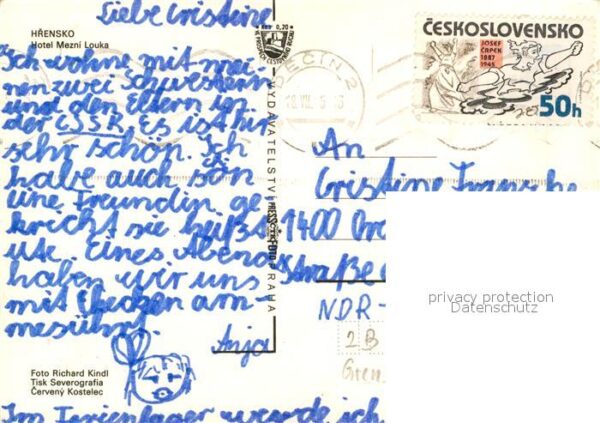 Liebe Cristine
HŘENSKO
Hotel Mezní Louka
Ich wohne mit mei
nen zwei Schwestern
und den Eltern in
der ČSSR. Es ist hir
sehr schön. Ich
habe auch schon
eine Freundin ge
kricht sie heißt
ute. Eines Abend
haben wir uns
mit
Anja
Foto Richard Kindl
Tisk Severografia
Červený Kostelec
Im Ferienlager werde ich
Kčs 0,20
VYDAVATELSTVÍ PRESSFOTO PRAHA
DĚČÍN 2
ČESKOSLOVENSKO
JOSEF
ČAPEK
1887
1945
50h
An
Cristine
1400
Straße
NDR-
2B
privacy protection
Datenschutz